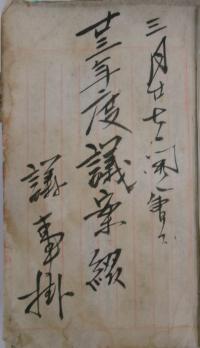 三月廿七日開會
廿三年度議案綴
議事掛